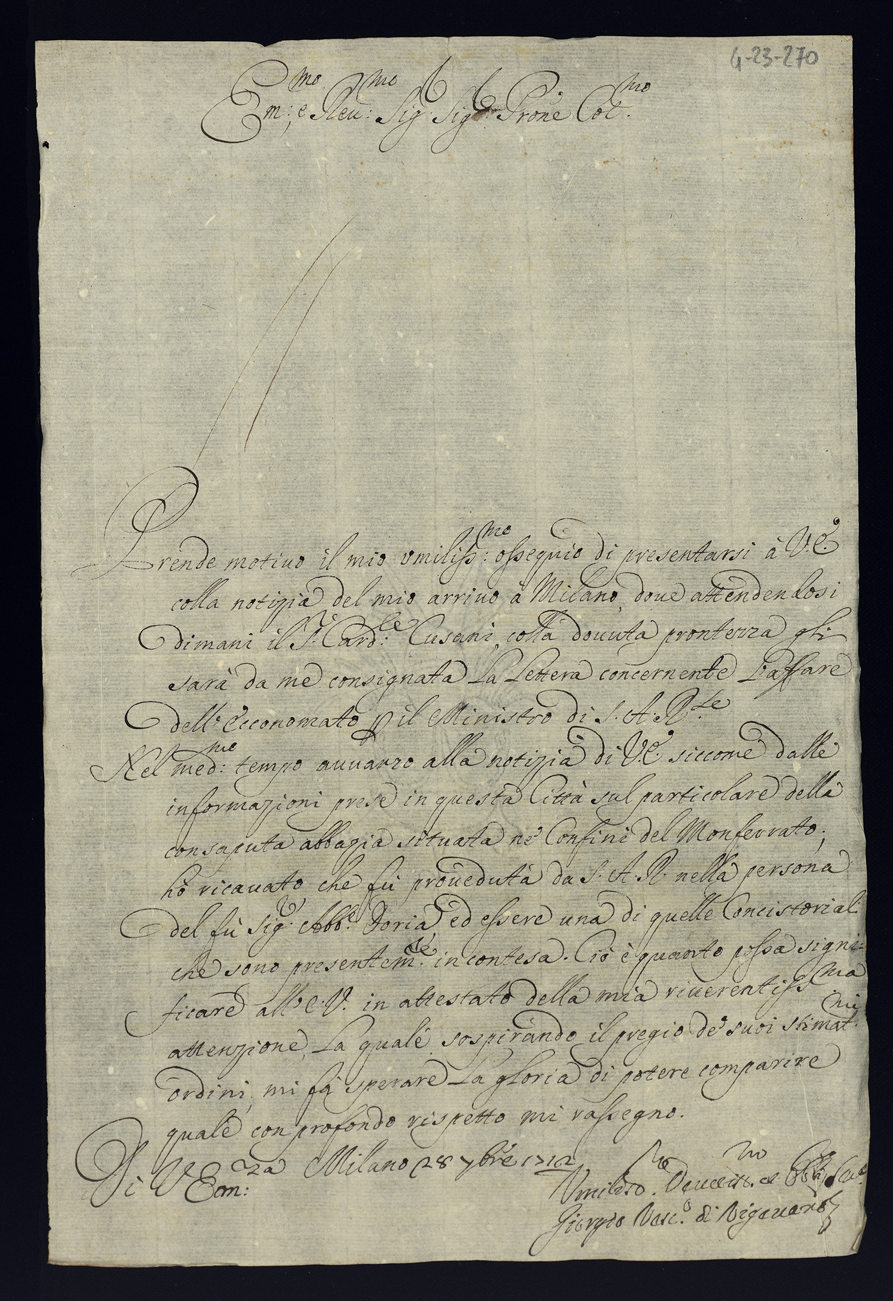 4-23-270
Em:mo e Reu:mo Sig.r Sig.r Prone Col:mo
Prende motiuo il mio vmiliss:mo ossequio di presentarsi à V.E.
colla notizia del mio arriuo à Milano, doue attendendosi
dimani il S.r Card:le Cusani, colla douuta prontezza gli
sarà da me consignata La Lettera concernente L'affare
dell'Economato p il Ministro di S. A. R.le
Nel med:mo tempo auuanzo alla notizia di V.E. siccome dalle
informazioni prese in questa Città sul particolare della
consaputa abbazia situata ne' Confini del Monferrato,
hò ricauato che fù proueduta da S. A. R. nella persona
del fù Sig.r Abb.e Doria, ed essere una di quelle Concistoriali
che sono presentem.te in contesa. Ciò è quanto possa signi-
ficare all'E.V. in attestato della mia riuerentiss.ma
attenzione, La quale sospirando il pregio de' suoi stimat.mi
ordini, mi fà sperare La gloria di potere comparire
quale con profondo rispetto mi rassegno.
Di V. Em:za Milano 28 7bre 1712
Vmiliss.o Deuotiss.mo et Obb.
Giorgio Vesc.o di Vigevano